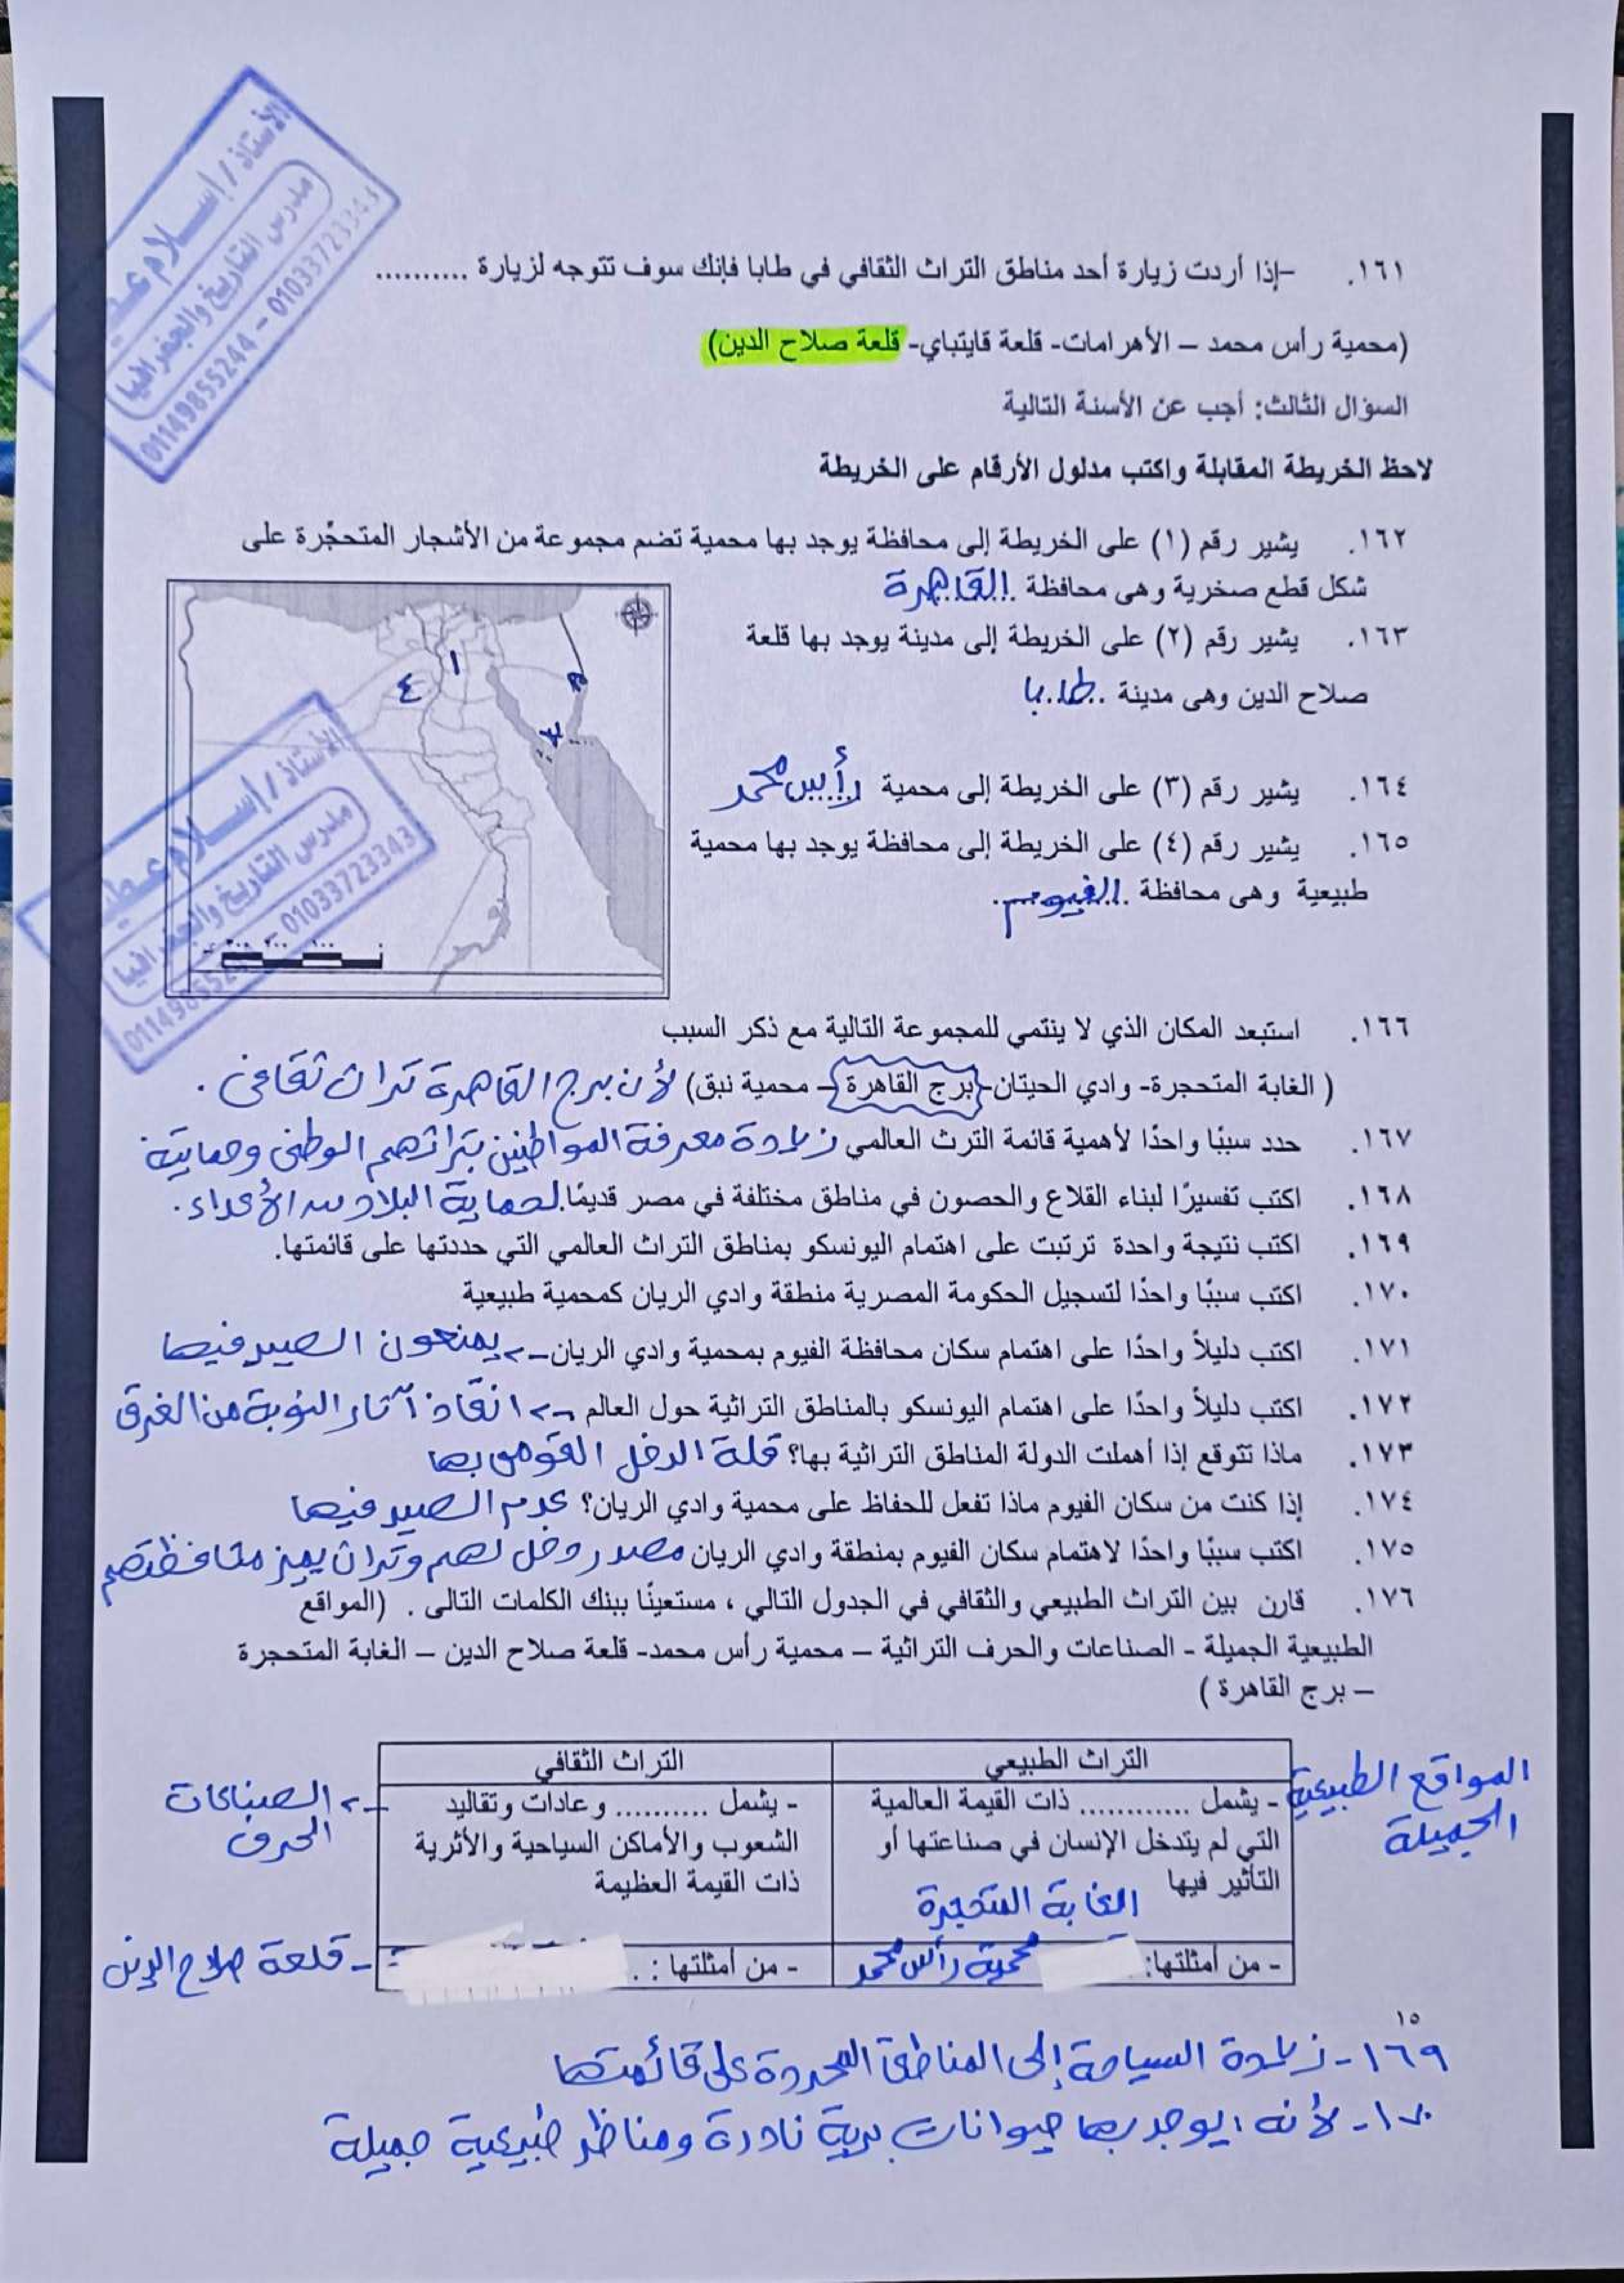 الأستاذ / إسلام
مدرس التاريخ والجغرافيا
01149855244 - 01033723343
١٦١. -إذا أردت زيارة أحد مناطق التراث الثقافي في طابا فإنك سوف تتوجه لزيارة ..........
(محمية رأس محمد – الأهرامات- قلعة قايتباي- قلعة صلاح الدين)
السؤال الثالث: أجب عن الأسئلة التالية
لاحظ الخريطة المقابلة واكتب مدلول الأرقام على الخريطة
١٦٢. يشير رقم (١) على الخريطة إلى محافظة يوجد بها محمية تضم مجموعة من الأشجار المتحجّرة على
شكل قطع صخرية وهى محافظة القاهرة
١٦٣. يشير رقم (٢) على الخريطة إلى مدينة يوجد بها قلعة
صلاح الدين وهى مدينة طابا
١٦٤. يشير رقم (٣) على الخريطة إلى محمية رأس محمد
١٦٥. يشير رقم (٤) على الخريطة إلى محافظة يوجد بها محمية
طبيعية وهى محافظة الفيوم
١
٢
٣
٤
الأستاذ / إسلام
مدرس التاريخ والجغرافيا
01033723343
١٦٦. استبعد المكان الذي لا ينتمي للمجموعة التالية مع ذكر السبب
( الغابة المتحجرة- وادي الحيتان- برج القاهرة – محمية نبق) لأن برج القاهرة تراث ثقافى .
١٦٧. حدد سببًا واحدًا لأهمية قائمة الترث العالمي زيادة معرفة المواطنين بتراثهم الوطنى وحمايته
١٦٨. اكتب تفسيرًا لبناء القلاع والحصون في مناطق مختلفة في مصر قديمًا. لحماية البلاد من الأعداء .
١٦٩. اكتب نتيجة واحدة ترتبت على اهتمام اليونسكو بمناطق التراث العالمي التي حددتها على قائمتها.
١٧٠. اكتب سببًا واحدًا لتسجيل الحكومة المصرية منطقة وادي الريان كمحمية طبيعية
١٧١. اكتب دليلاً واحدًا على اهتمام سكان محافظة الفيوم بمحمية وادي الريان -> يمنعون الصيد فيها
١٧٢. اكتب دليلاً واحدًا على اهتمام اليونسكو بالمناطق التراثية حول العالم -> انقاذ آثار النوبة من الغرق
١٧٣. ماذا تتوقع إذا أهملت الدولة المناطق التراثية بها؟ قلة الدخل القومى بها
١٧٤. إذا كنت من سكان الفيوم ماذا تفعل للحفاظ على محمية وادي الريان؟ عدم الصيد فيها
١٧٥. اكتب سببًا واحدًا لاهتمام سكان الفيوم بمنطقة وادي الريان مصدر دخل لهم وتراث يميز محافظتهم
١٧٦. قارن بين التراث الطبيعي والثقافي في الجدول التالي ، مستعينًا ببنك الكلمات التالى . (المواقع
الطبيعية الجميلة - الصناعات والحرف التراثية – محمية رأس محمد- قلعة صلاح الدين – الغابة المتحجرة
– برج القاهرة )
التراث الطبيعي
التراث الثقافي
- يشمل ............ ذات القيمة العالمية
التي لم يتدخل الإنسان في صناعتها أو
التأثير فيها
المواقع الطبيعية
الجميلة
- يشمل .......... وعادات وتقاليد
الشعوب والأماكن السياحية والأثرية
ذات القيمة العظيمة
-> الصناعات
الحرف
الغابة المتحجرة
- من أمثلتها: محمية رأس محمد
- من أمثلتها : .
- قلعة صلاح الدين
١٥
١٦٩- زيادة السياحة إلى المناطق المحددة على قائمتها
١٧٠- لأنه يوجد بها حيوانات برية نادرة ومناظر طبيعية جميلة